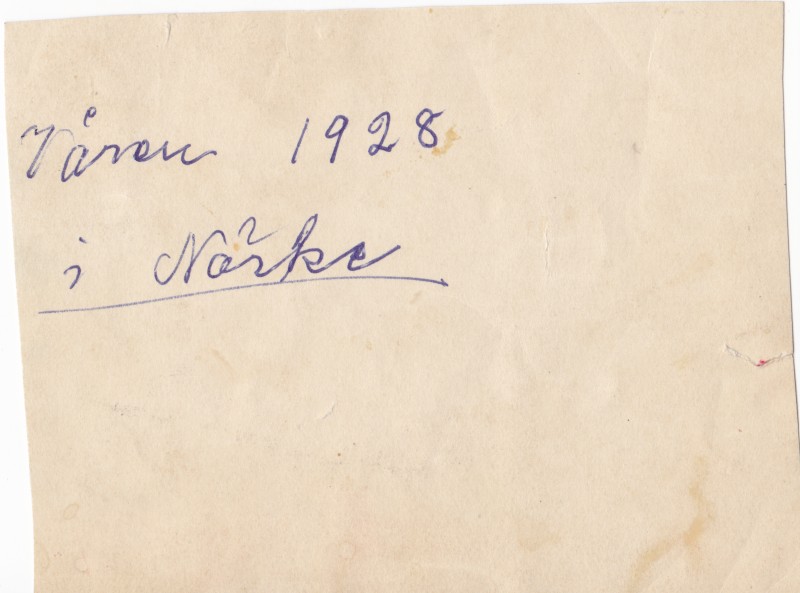 Våren 1928
i Närke